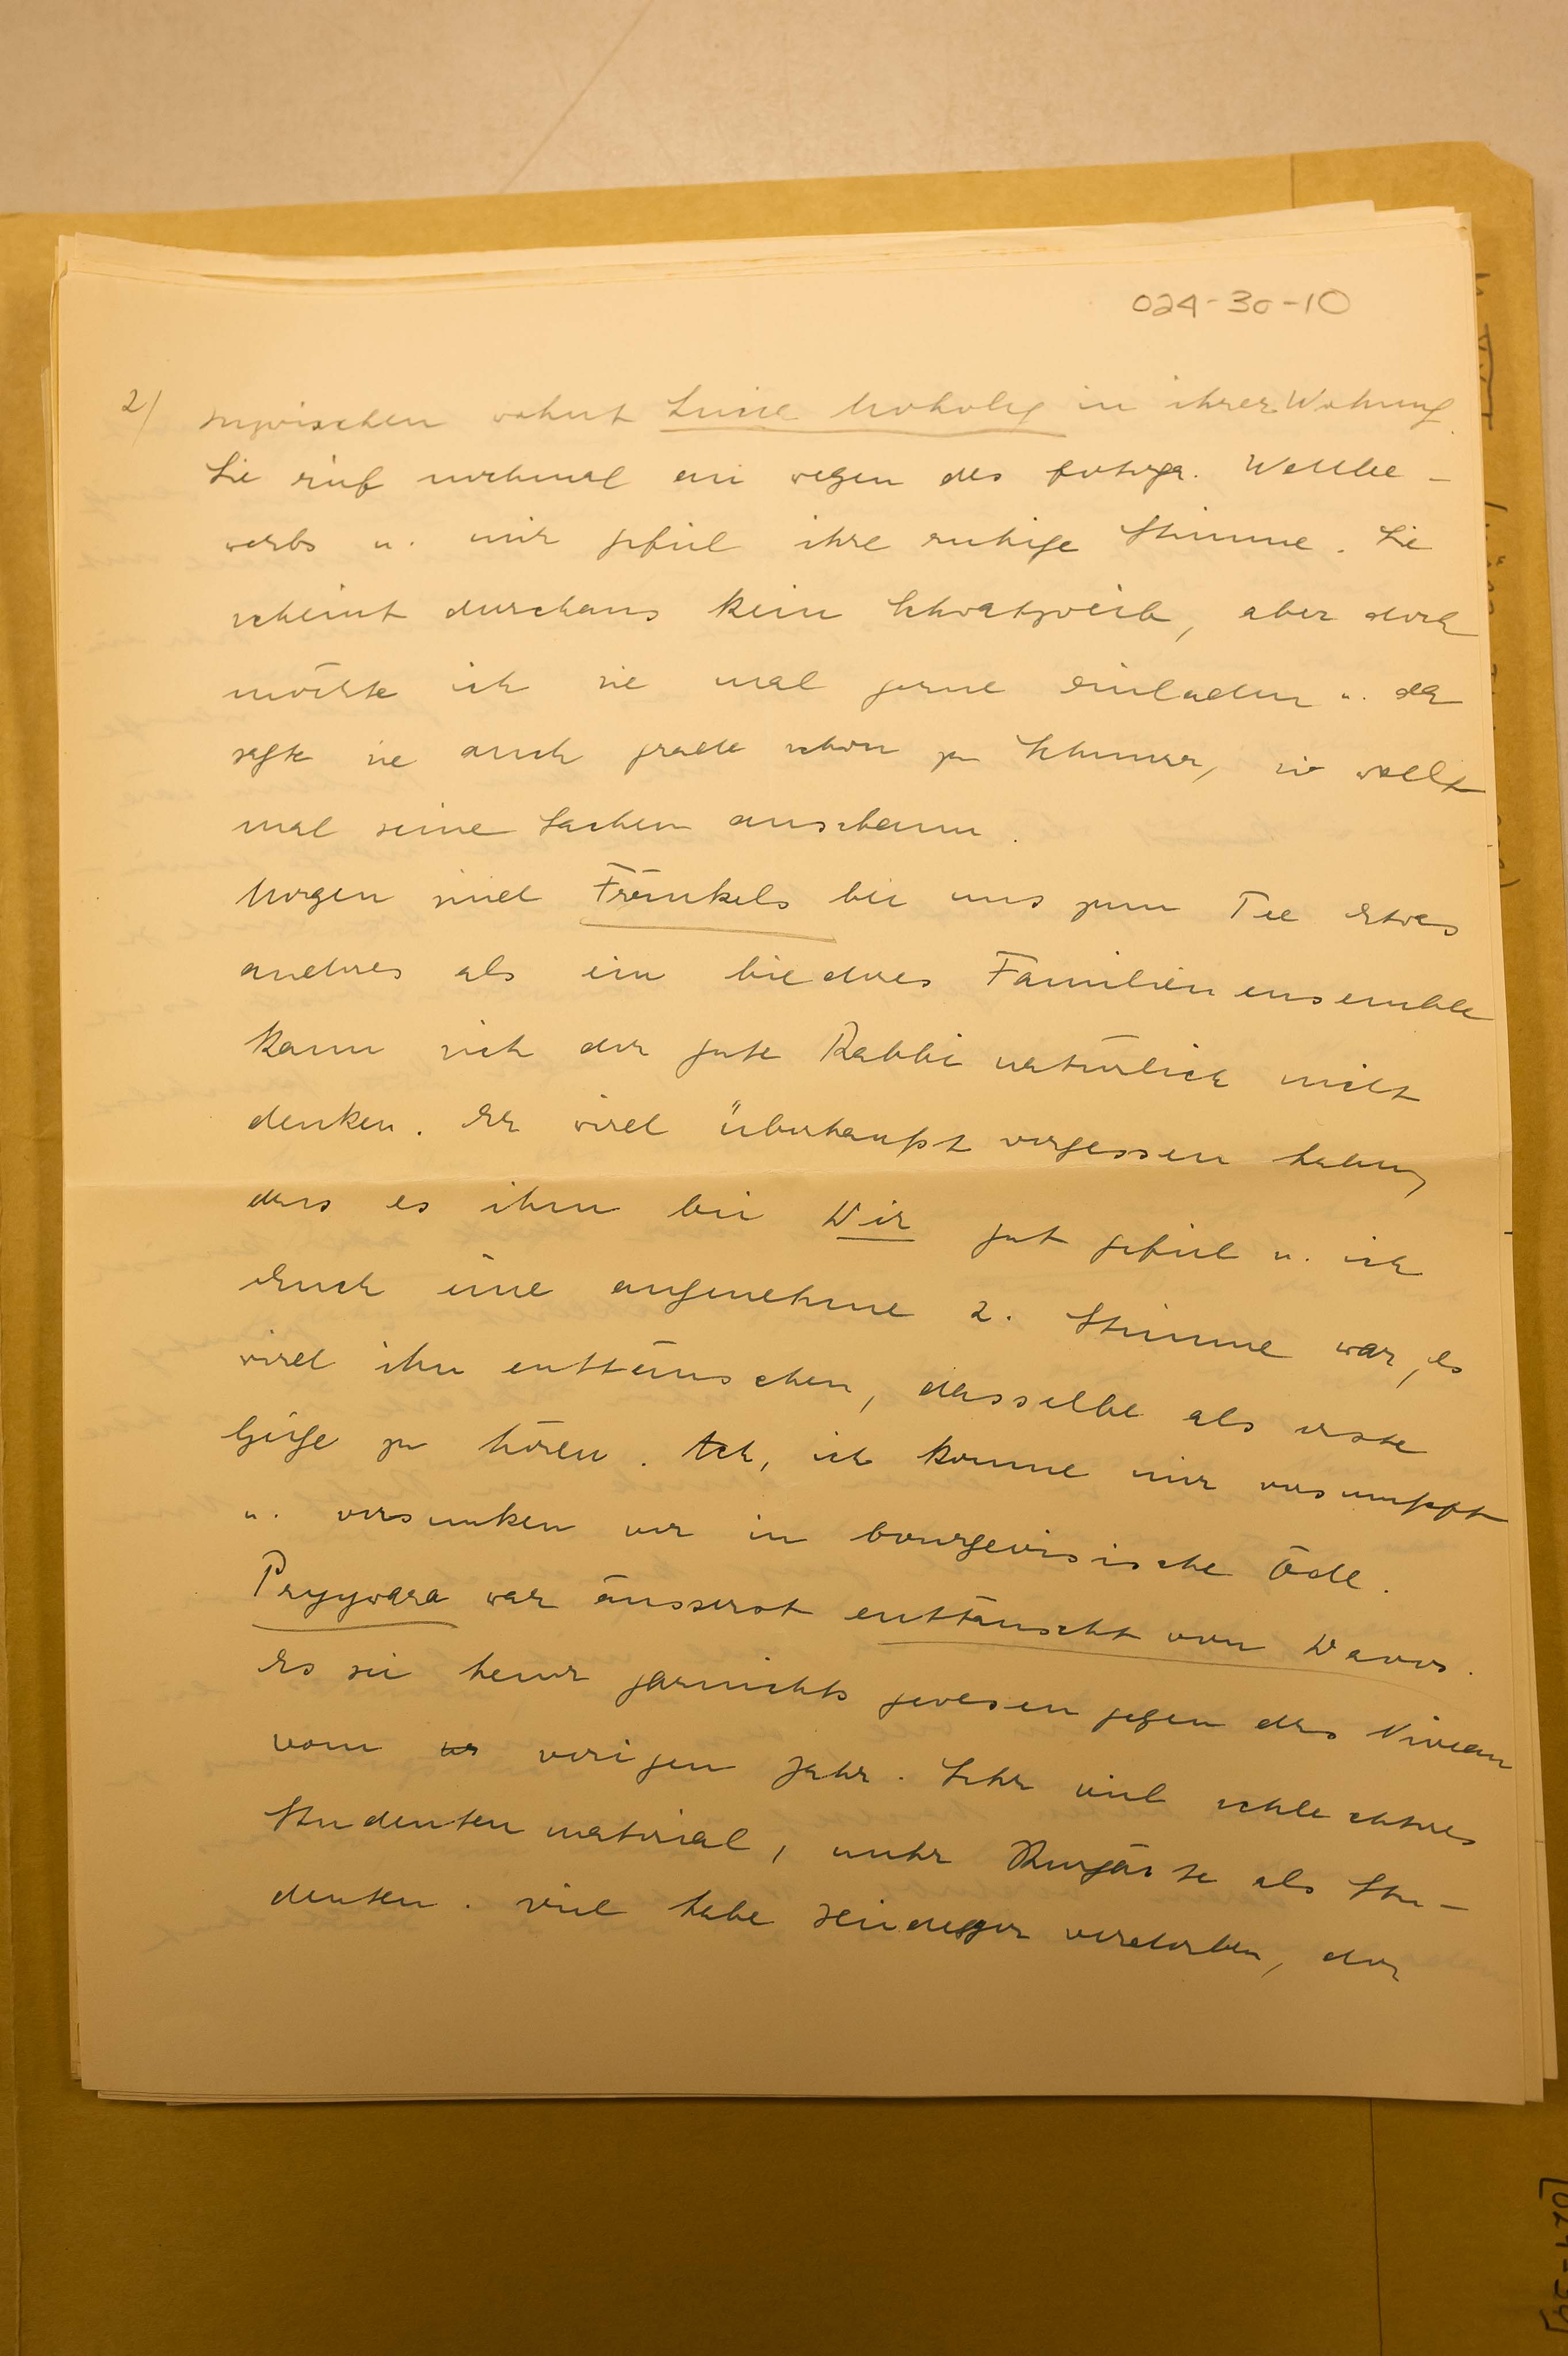 024-30-10
2/ inzwischen wohnt Luise Moholy in ihrer Wohnung.
Sie rief nochmal an wegen des fotogr. Wettbe-
werbs u. mir gefiel ihre ruhige Stimme. Sie
scheint durchaus kein Schwatzweib, aber doch
möchte ich sie mal gerne einladen u. da
sagte sie auch grade schon zu, sie wollte
mal seine Sachen anschauen.
Morgen sind Fränkels bei uns zum Tee etwas
andres als ein biedres Familienensemble
kann sich der gute Rabbi natürlich nicht
denken. Er wird überhaupt vergessen haben,
dass es ihm bei Dir gut gefiel u. ich
auch eine angenehme 2. Stimme war, es
wird ihn enttäuschen, dasselbe als erste
Geige zu hören. Ach, ich komme mir versumpft
u. versunken vor in bourgeoisische Öde.
Przywara war äusserst enttäuscht von Davos.
Es sei heuer garnichts gewesen gegen das Niveau
vom vorigen Jahr. Sehr viel schlechteres
Studentenmaterial, mehr Kurgäste als Stu-
denten. Viel habe Heidegger verdorben, der